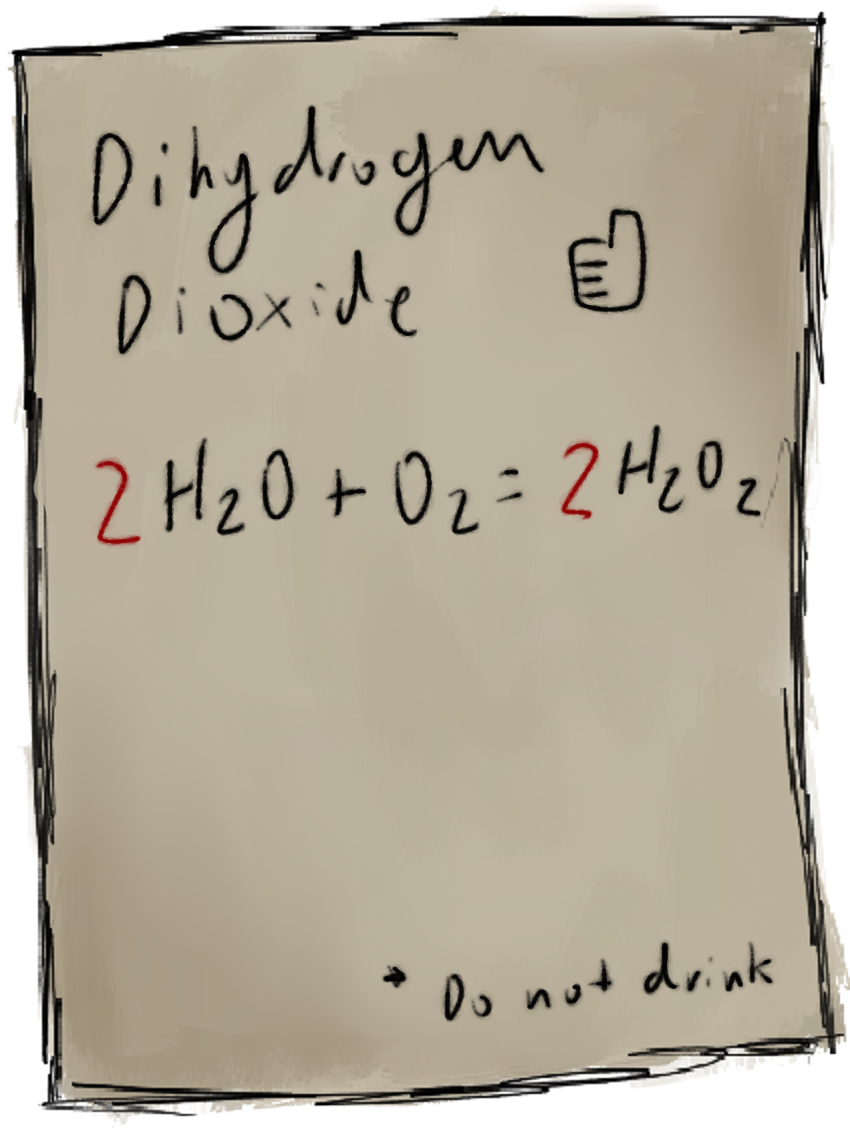 Dihydrogen
Dioxide
2H₂O + O₂ = 2H₂O₂
* Do not drink